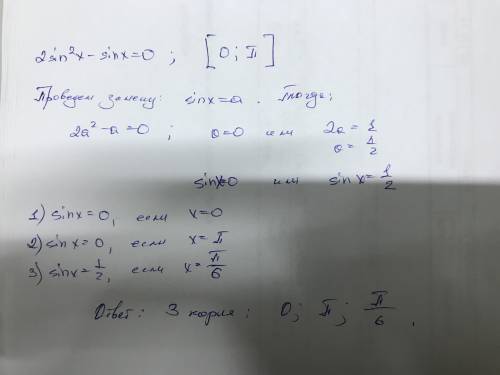 2sin²x - sinx = 0 ; [0; π]
Проведем замену: sinx = a. Тогда:
2a² - a = 0 ; a = 0 или 2a = 1
a = 1/2
sinx = 0 или sinx = 1/2
1) sinx = 0, если x = 0
2) sinx = 0, если x = π
3) sinx = 1/2, если x = π/6
Ответ: 3 корня: 0; π; π/6.